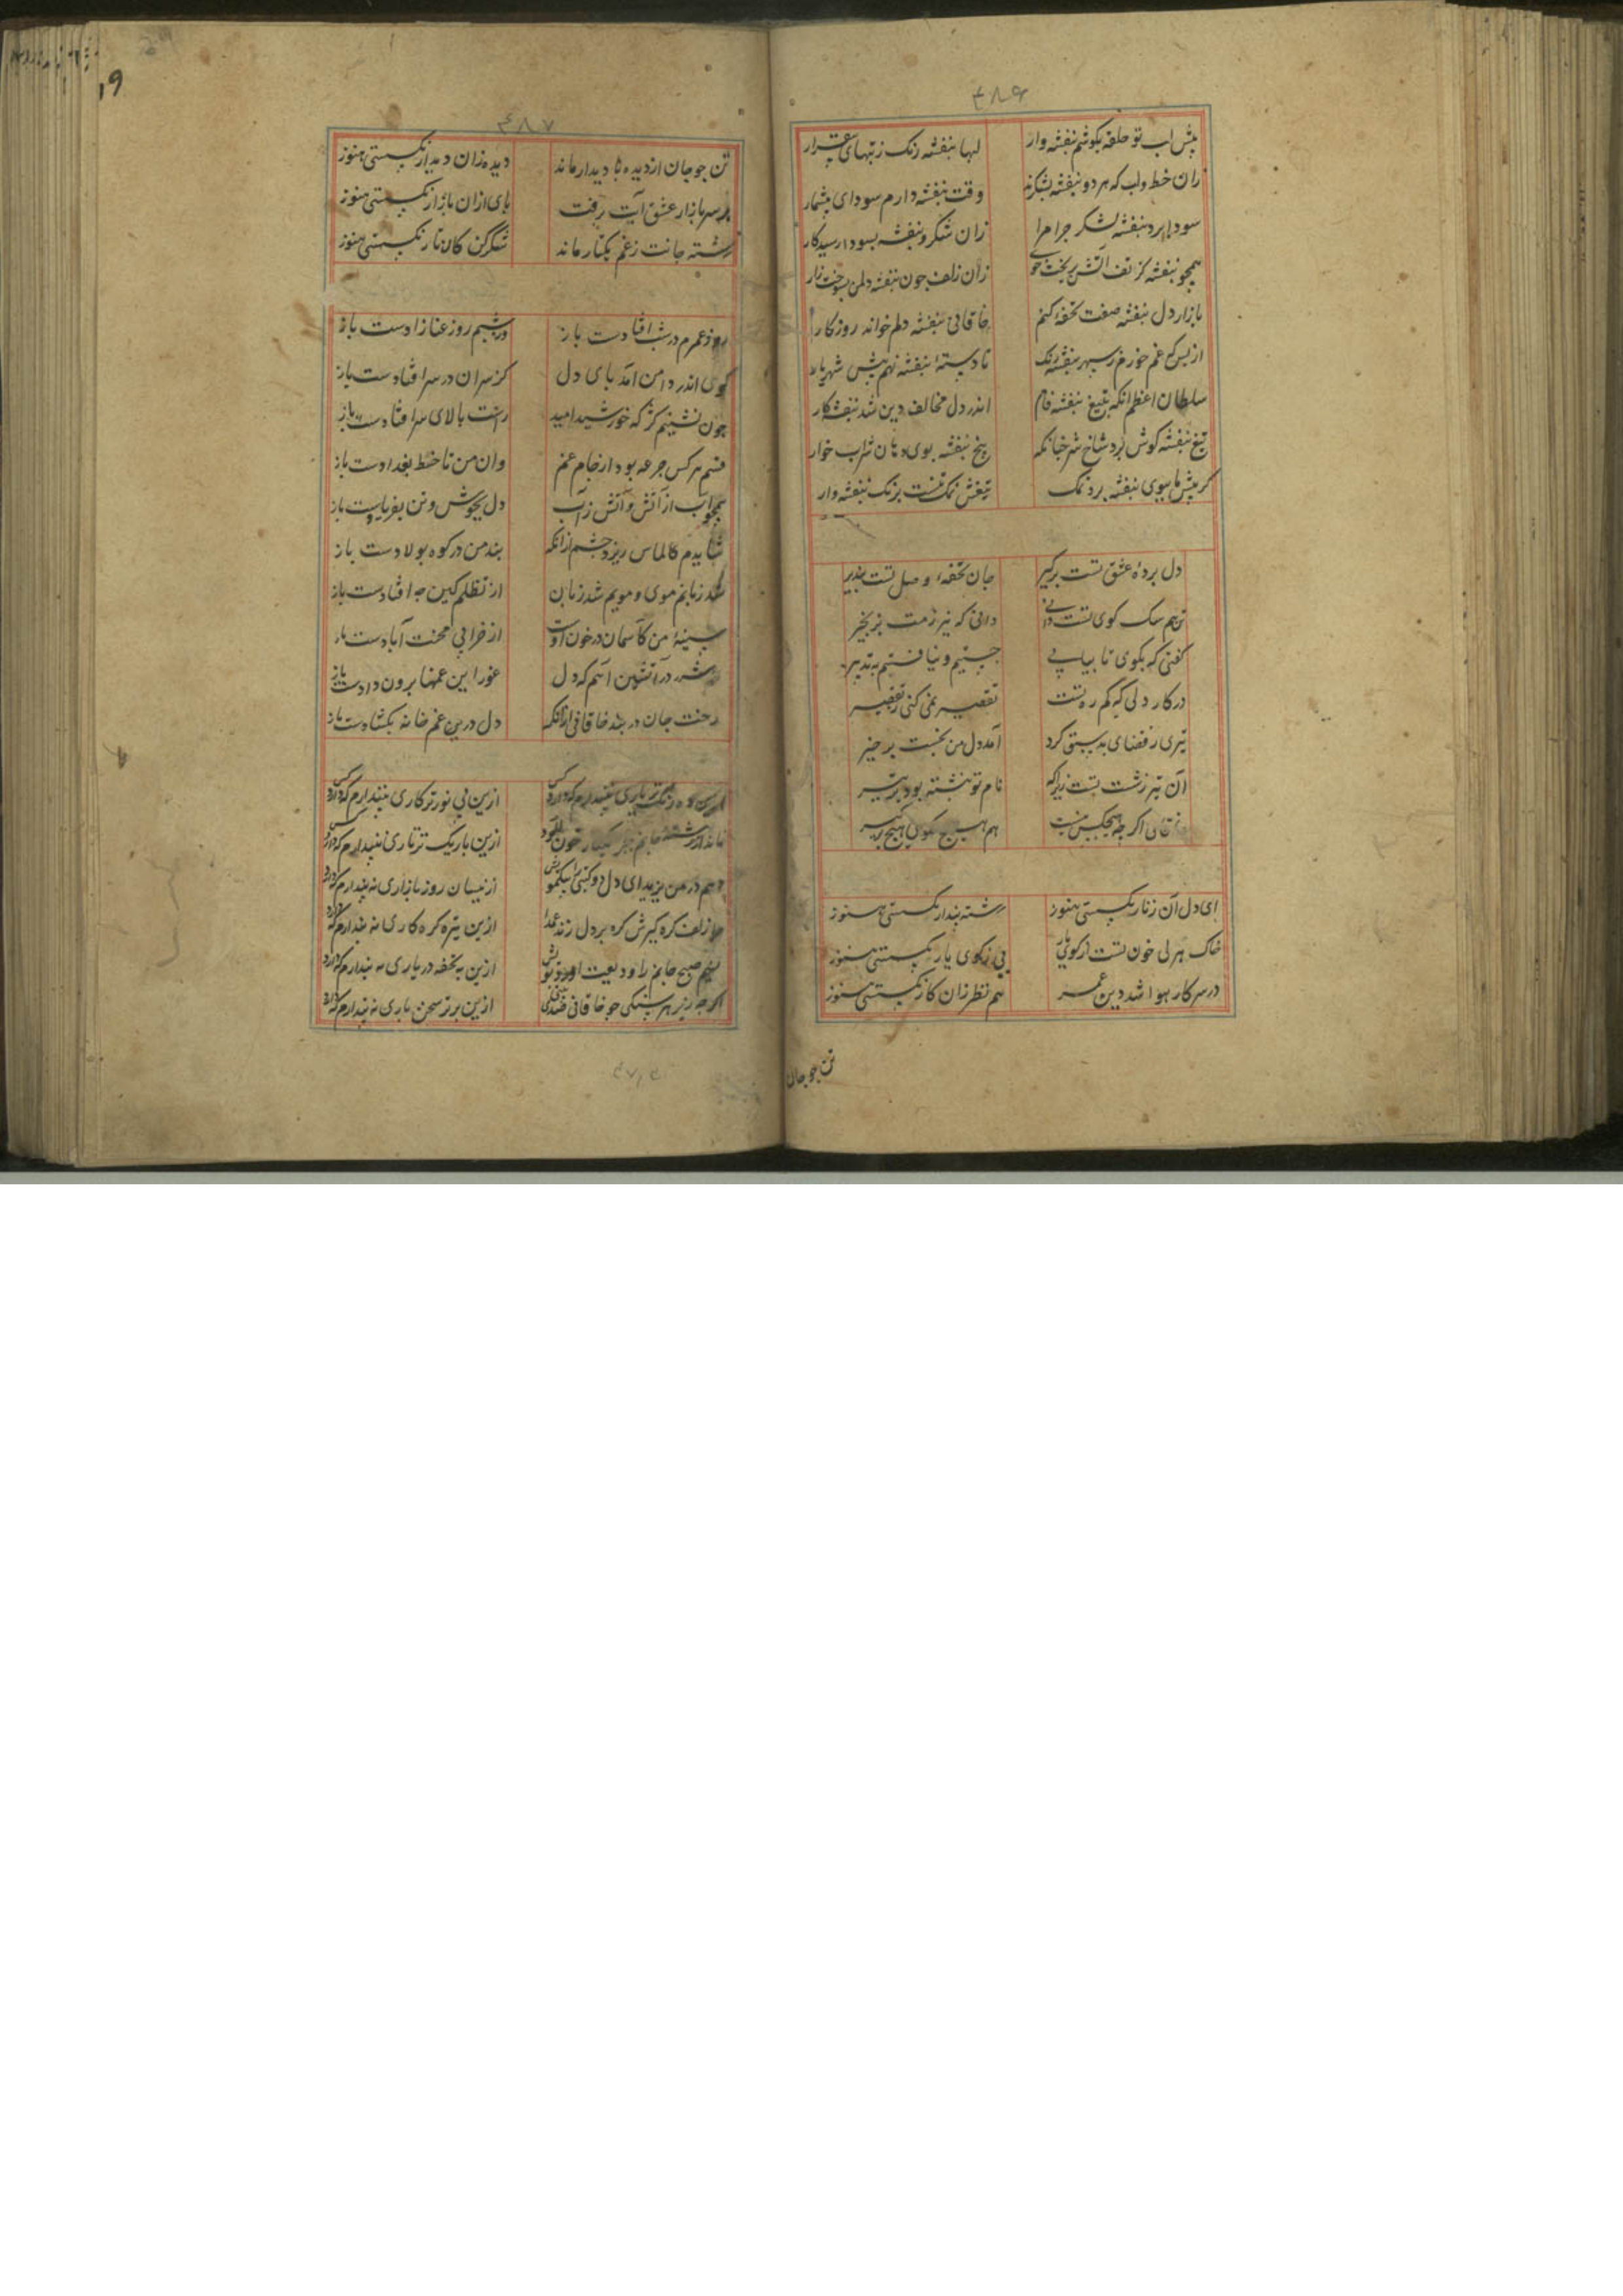 ۴۸۶
پیش لب تو حلقه بکوشم بنفشه وار لبها بنفشه رنک ز تبهای بیقرار
زان خط و لب که هر دو بنفشه بشکرند وقت بنفشه دارم سودای بیشمار
سودا برد بنفشه بشکر چرا مرا زان شکر و بنفشه بسودا رسید کار
همچو بنفشه کز تف آتش بریخت خوی زان زلف چون بنفشه دل من بسوخت زار
بازار دل بنفشه صفت تحفه کنم خاقانی بنفشه دلم خواند روزکار
از بس که غم خورم ز سپهر بنفشه رنک تا دستهٔ بنفشه نهم پیش شهریار
سلطان اعظم آنکه بتیغ بنفشه فام اندر دل مخالف دین شد بنفشه کار
تیغ بنفشه کوش برد شاخ شر چنانکه بیخ بنفشه بوی دهان شراب خوار
کر پیش ما ببوی بنفشه برد نمک تیغش نمک تنست برنک بنفشه وار
دل بردهٔ عشق تست برکیر جان تحفهٔ وصل تست بپذیر
تن هم سک کوی تست دانی دانی که نیرزمت بزنجیر
کفتی که بجوی تا بیابی جستیم و نیافتیم تدبیر
در کار دلی که کم ره تست تقصیر نمی کنی ز تقصیر
تیری ز قضای بد سبق کرد آمد دل من بخست بر خیر
آن تیر ز شست تست زیراکه نام تو نبشته بود بر تیر
خاقانی اکرچه هیچکس نیست هم هیچ مکوی هیچ بر کیر
ای دل آن زنار نکسستی هنوز رشته پندار نکسستی هنوز
خاک هر پی خون تست از کوی یار پی ز کوی یار نکسستی هنوز
در سر کار هوا شد دین و عمر هم نظر زان کار نکسستی هنوز
تن چو جان
۴۸۷
تن چو جان از دیده نا دیدار ماند دیده زان دیدار نکسستی هنوز
بر سر بازار عشق آبت برفت پای ازان بازار نکسستی هنوز
رشته جانت ز غم یکتار ماند شکر کن کان تار نکسستی هنوز
روز عمرم در شب افتادست باز وز شبم روز عنا زادست باز
کوی اندر دامن آمد پای دل کز سران در سر افتادست باز
چون نشینم کژ که خورشید امید راست بالای سر افتادست باز
قسم هر کس جرعه بود از جام غم وان من تا خط بغدادست باز
همچو آب از آتش و آتش ز آب دل بجوش و تن بفریادست باز
شایدم کالماس ریزد چشم ازانکه بند من در کوه پولادست باز
شد زبانم موی و مویم شد زبان از تظلم کین چه افتادست باز
سینهٔ من کآسمان در خون اوست از خرابی محنت آبادست باز
در آتشین آهم که دل غور این غمها برون دادست باز
رخت جان در بند خاقانی ازانکه دل درین غم خانه بکشادست باز
تر یاری نپندارم که دارد کس ازین بی نور تر کاری نپندارم که دارد کس
نماند از رشتهٔ جانم بجز یکتار خون آلود ازین باریک تر تاری نپندارم که دارد کس
ازینسان روز بازاری نپندارم که دارد کس
زلف کره کیرش کره بر دل زند عمدا ازین تیره کره کاری نپندارم که دارد کس
نسیم صبح جانم را ودیعت آورد بویش ازین به تحفه در یاری نپندارم که دارد کس
اکرچه زیر هر سنکی چو خاقانی ازین برتر سخن باری نپندارم که دارد کس